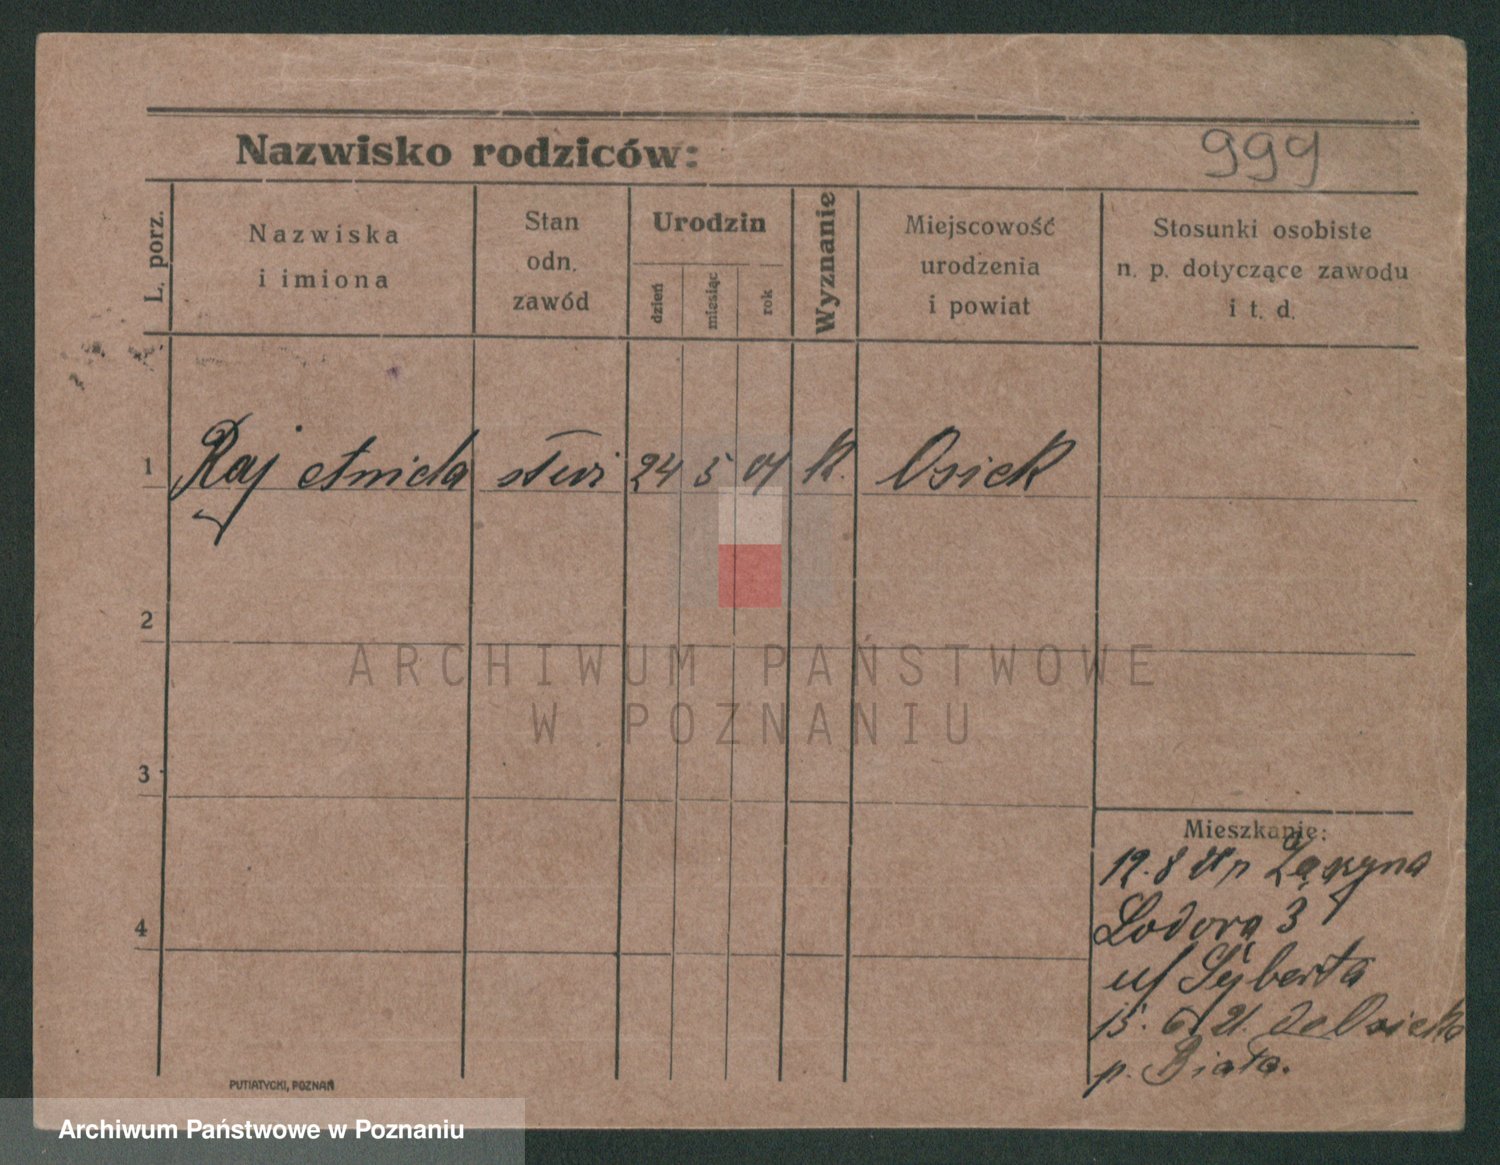 Nazwisko rodziców:
999
L. porz.
Nazwiska
i imiona
Stan
odn.
zawód
Urodzin
dzień
miesiąc
rok
Wyznanie
Miejscowość
urodzenia
i powiat
Stosunki osobiste
n. p. dotyczące zawodu
i t. d.
1 Raj Aniela 24 5 01 k. Osiek
2
ARCHIWUM PAŃSTWOWE
W POZNANIU
3
Mieszkanie:
19. 8
4
3
u/ Syberta
15. 6. 21. do Osieka
p. Biała.
PUTIATYCKI, POZNAŃ
Archiwum Państwowe w Poznaniu